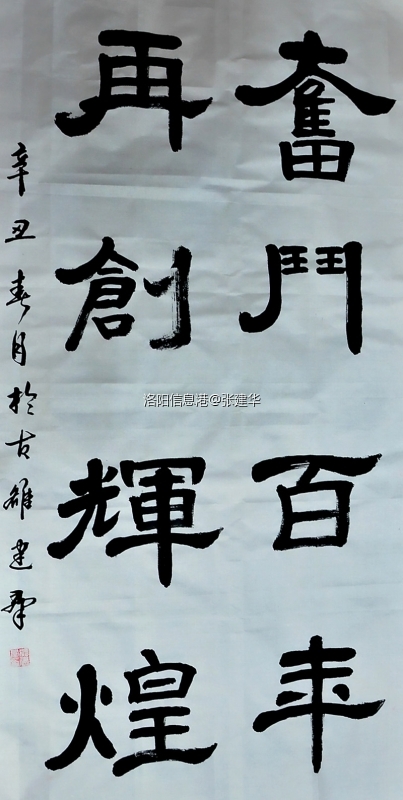 奮鬥百年
再創輝煌
辛丑春月於古雒建華
洛阳信息港@张建华